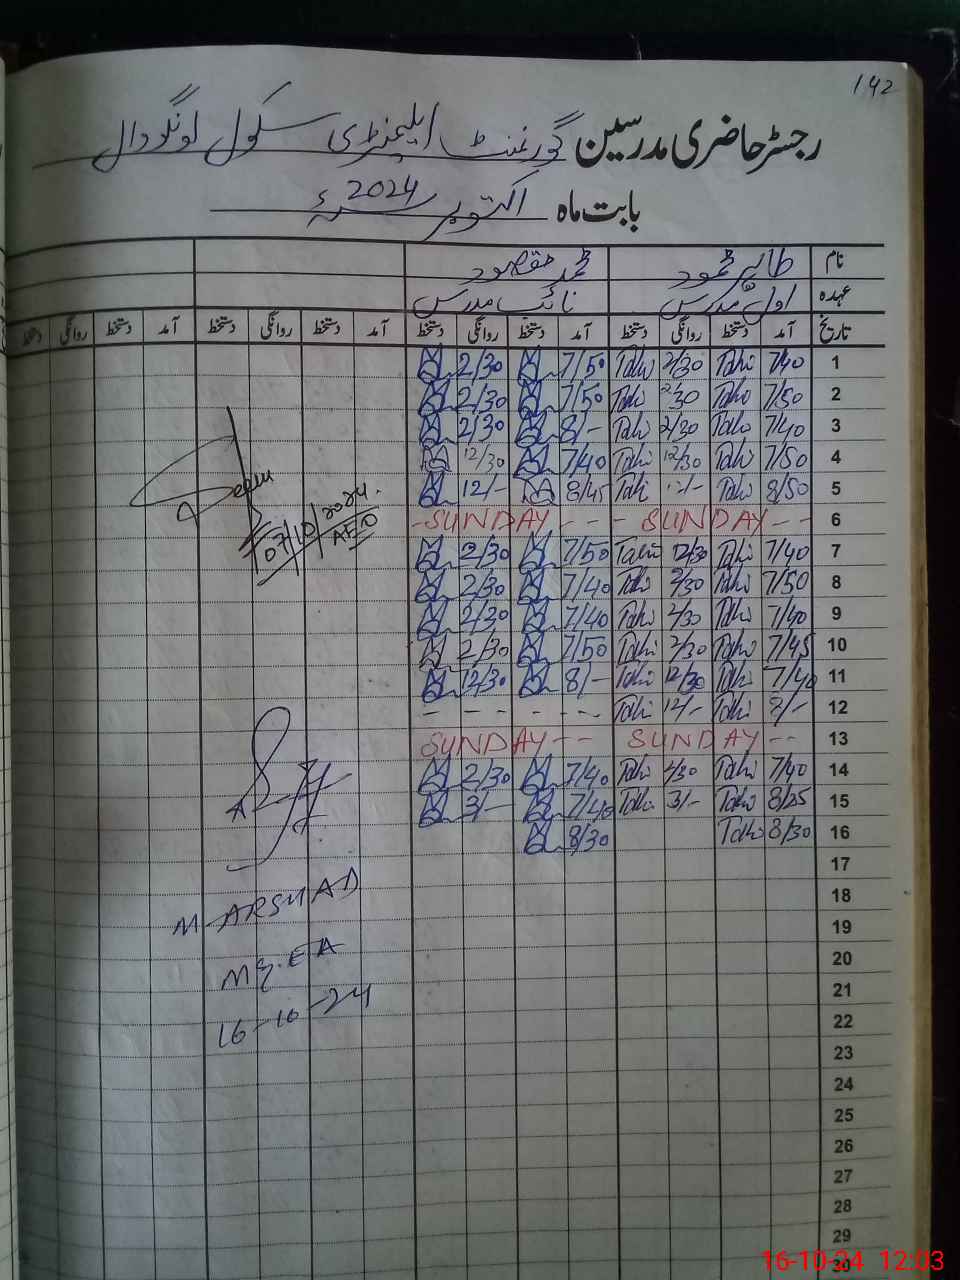 142
رجسٹر حاضری مدرسین گورنمنٹ ایلیمنٹری سکول لونگووال
بابت ماہ اکتوبر 2024ء
نام طاہر محمود محمد مقصود
عہدہ اول مدرس نائب مدرس
تاریخ آمد دستخط روانگی دستخط آمد دستخط روانگی دستخط آمد دستخط روانگی دستخط آمد دستخط روانگی دستخط
1 7/40 Tahi 2/30 Tahi 7/50 2/30
2 7/50 Tahi 2/30 Tahi 7/50 2/30
3 7/40 Tahi 2/30 Tahi 8/- 2/30
4 7/50 Tahi 12/30 Tahi 7/40 12/30
5 8/50 Tahi 12/- Tahi 8/45 12/-
6 SUNDAY - - - SUNDAY - -
7 7/40 Tahi 12/30 Tahi 7/50 2/30
8 7/50 Tahi 2/30 Tahi 7/40 2/30
9 7/40 Tahi 2/30 Tahi 7/40 2/30
10 7/45 Tahi 2/30 Tahi 7/50 2/30
11 7/40 Tahi 12/30 Tahi 8/- 12/30
12 8/- Tahi 12/- Tahi - - - - - - -
13 SUNDAY - - SUNDAY - -
14 7/40 Tahi 2/30 Tahi 7/40 2/30
15 8/25 Tahi 3/- Tahi 7/40 3/-
16 8/30 Tahi 8/30
17
18
19
20
21
22
23
24
25
26
27
28
29
30
07/10/2024
AEO
M. ARSHAD
MEA
16-10-24
16-10-24 12:03